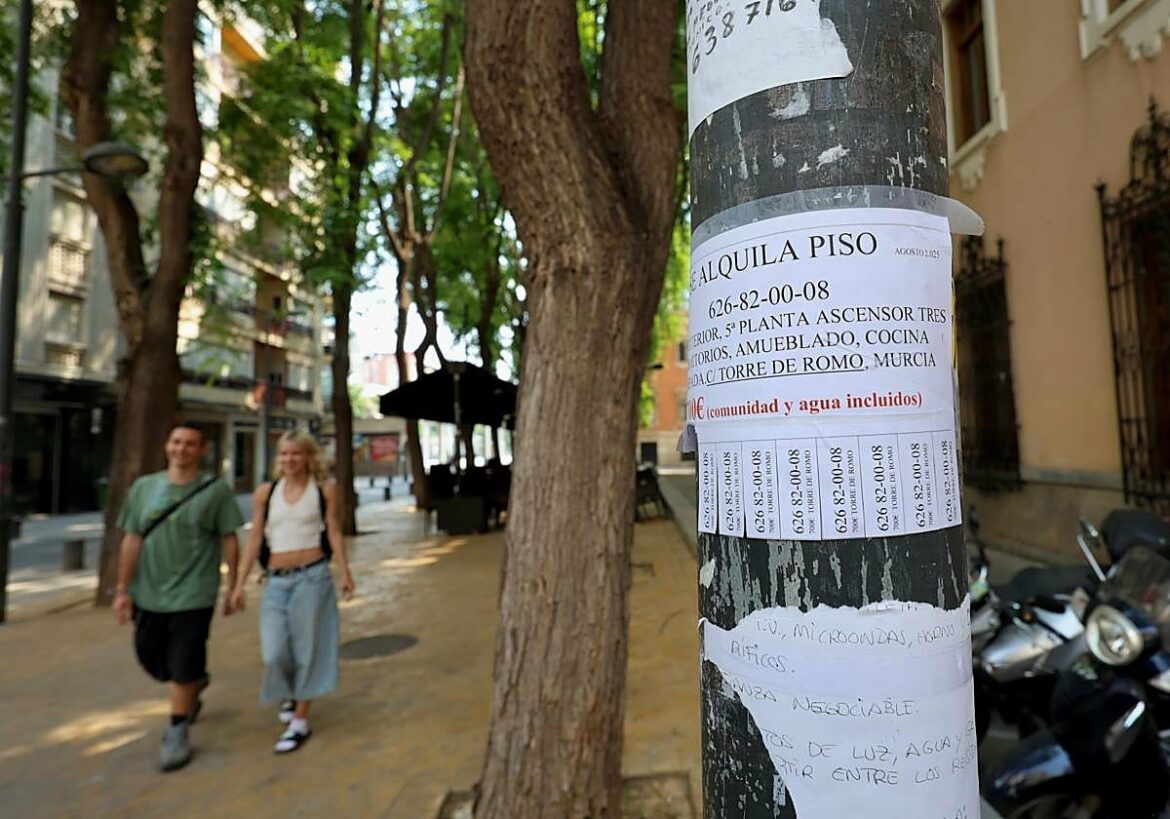 638716
ALQUILA PISO
AGOSTO 2.025
626-82-00-08
ERIOR, 5ª PLANTA ASCENSOR TRES
ITORIOS, AMUEBLADO, COCINA
ADA,C/ TORRE DE ROMO, MURCIA
0€ (comunidad y agua incluidos)
626 82-00-08
TORRE DE ROMO
626 82-00-08
700€ TORRE DE ROMO
626 82-00-08
700€ TORRE DE ROMO
626 82-00-08
700€ TORRE DE ROMO
626 82-00-08
700€ TORRE DE ROMO
626 82-00-08
700€ TORRE DE ROMO
626 82-00-08
700€ TORRE DE ROMO
626 82-00-08
, MICROONDAS, HORNO
RÍFICOS.
ANZA NEGOCIABLE.
TOS DE LUZ, AGUA Y
TIR ENTRE LOS